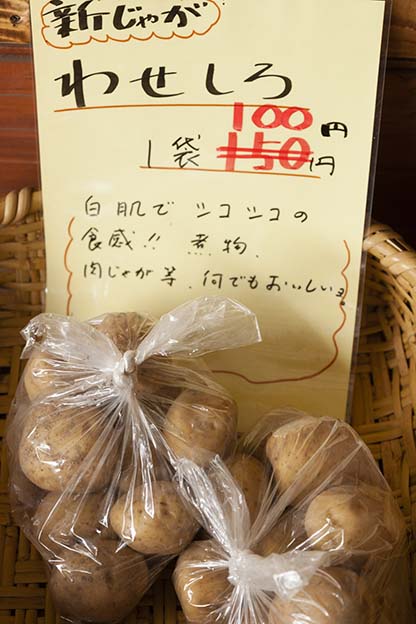 新じゃが
わせしろ
100円
1袋 150円
白肌で シコシコの
食感!! 煮物、
肉じゃが等、何でもおいしいョ。